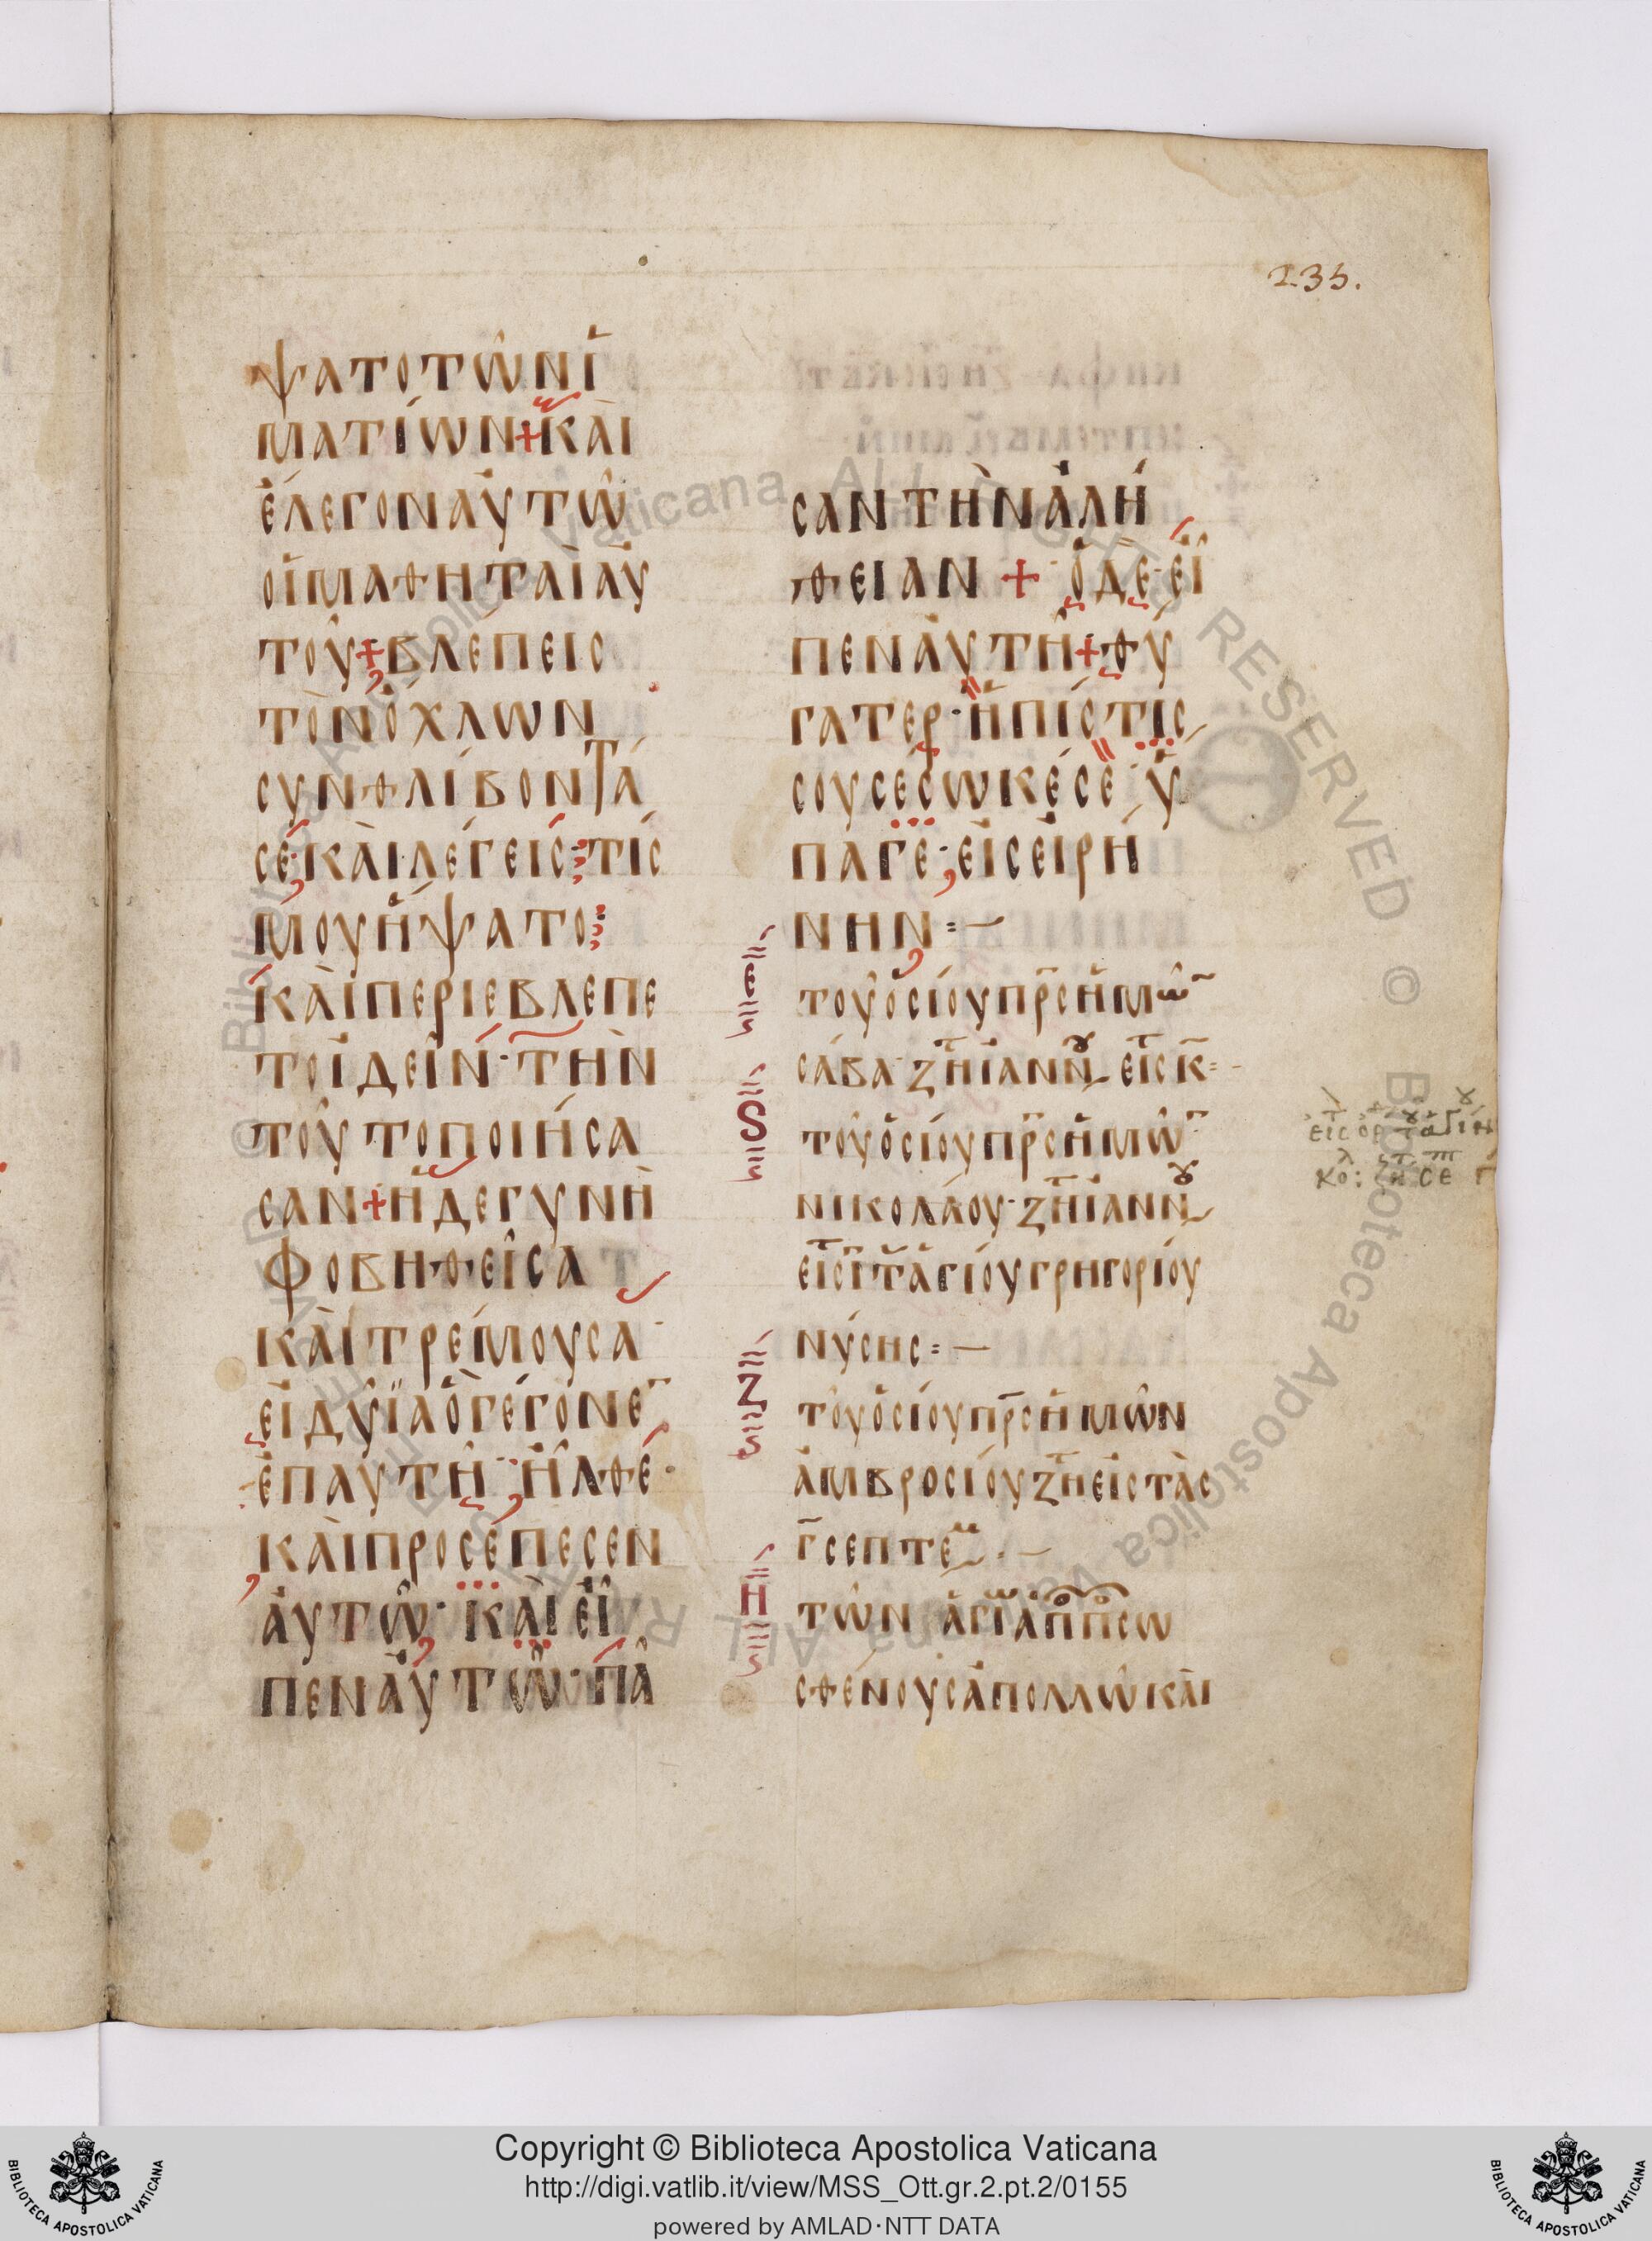 235.
ψατοτῶνἱ
ματίων+καὶ
ἔλεγοναὐτῶ
οἱμαθηταὶαὐ
τοῦ+βλέπεις
τὸνὄχλων
συνθλίβοντά
σε·καὶλέγεις:τίς
μουἥψατο:
καὶπεριεβλέπε
τοἰδεῖν·τὴν
τοῦτοποιήσα
σαν+ἡδεγυνὴ
φοβηθεῖσα
καὶτρέμουσα
εἰδυῖαὃγέγονε
ἐπαυτῆ·ἦλθε·
καὶπροσέπεσεν
ἀυτῶ·καὶεἶ
πεναὐτῶ·πᾶ
σαντὴνἀλή
θειαν+ὁδὲεἶ
πεναὐτῆ+θύ
γατερ·ἡπίστις
σουσέσωκέσε·ὕ
παγε·εἰςεἰρή
νην=—
Ε
τοῦὁσίουπρ̅ςἡμῶ
σάβα·ζητ ἰανν εἰς κ=
S
τοῦὁσίουπρ̅ςἡμῶ
νικολάου·ζητ ἰανν
εἰςϊ τ ἁγίουγρηγορίου
νύσης=—
Ζ
τοῦὁσίουπρ̅ςἡμῶν
ἀμβροσίουζητ εἰςτὰς
γ̅σεπτε.—
Η
τῶν ἁγι απ πι σω
σθένουςἀπολλῶκαὶ
Copyright © Biblioteca Apostolica Vaticana
http://digi.vatlib.it/view/MSS_Ott.gr.2.pt.2/0155
powered by AMLAD·NTT DATA
BIBLIOTECA APOSTOLICA VATICANA
BIBLIOTECA APOSTOLICA VATICANA